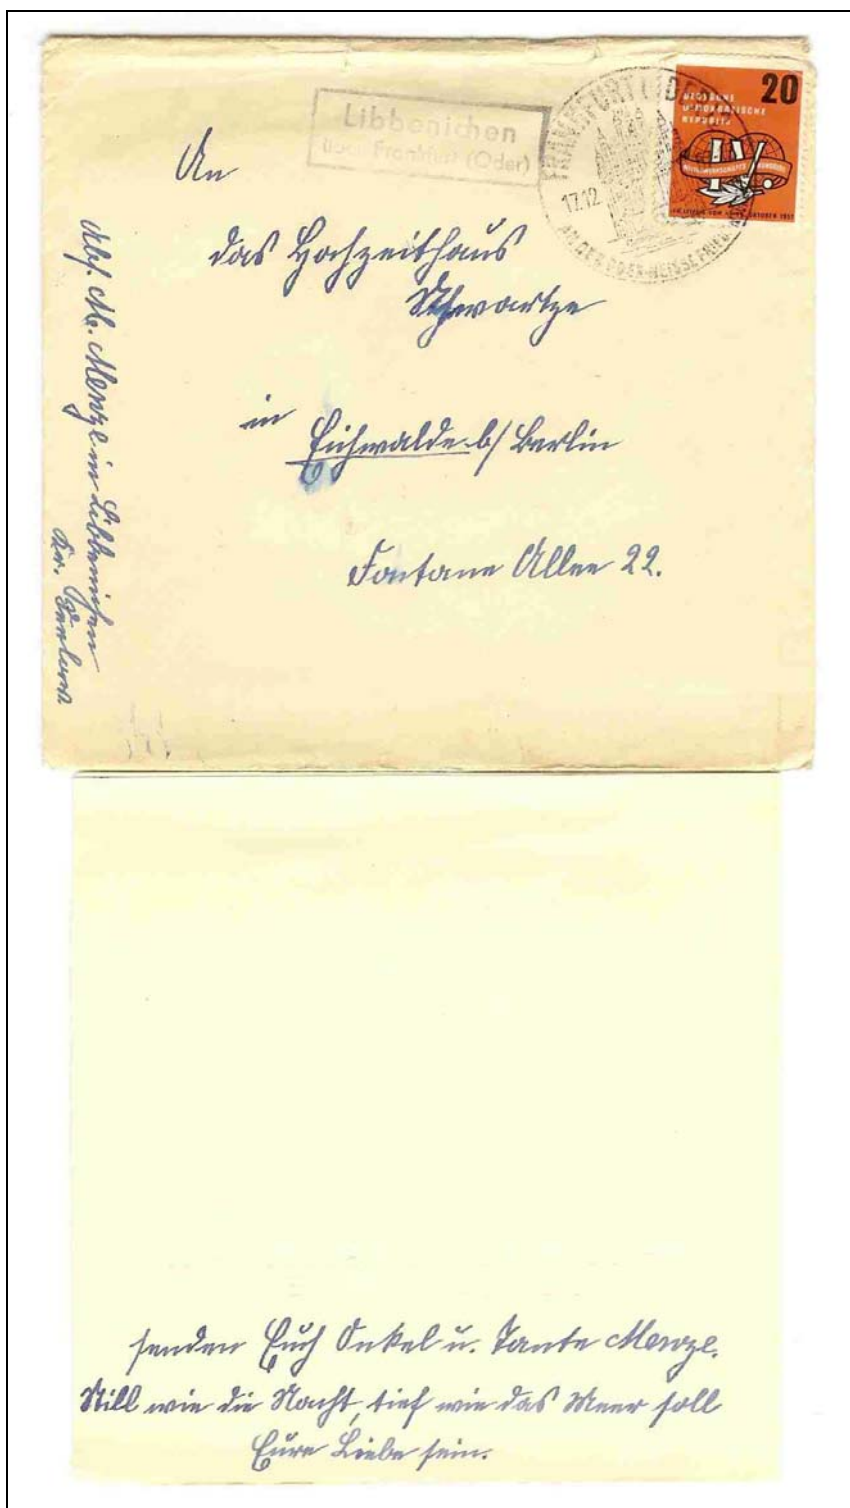 Libbenichen
über Frankfurt (Oder)
FRANKFURT (ODER)
17.12
AN DER ODER-NEISSE-FRIED
20
DEUTSCHE
DEMOKRATISCHE
REPUBLIK
IV.
IN LEIPZIG VOM OKTOBER 1957
An
das Hochzeithaus
Schwartze
in Eichwalde b/ Berlin
Fontane Allee 22.
Abs. M. Menze in Libbenichen
Kr. Seelow
senden Euch Onkel u. Tante Menze.
Still wie die Nacht, tief wie das Meer soll
Eure Liebe sein.